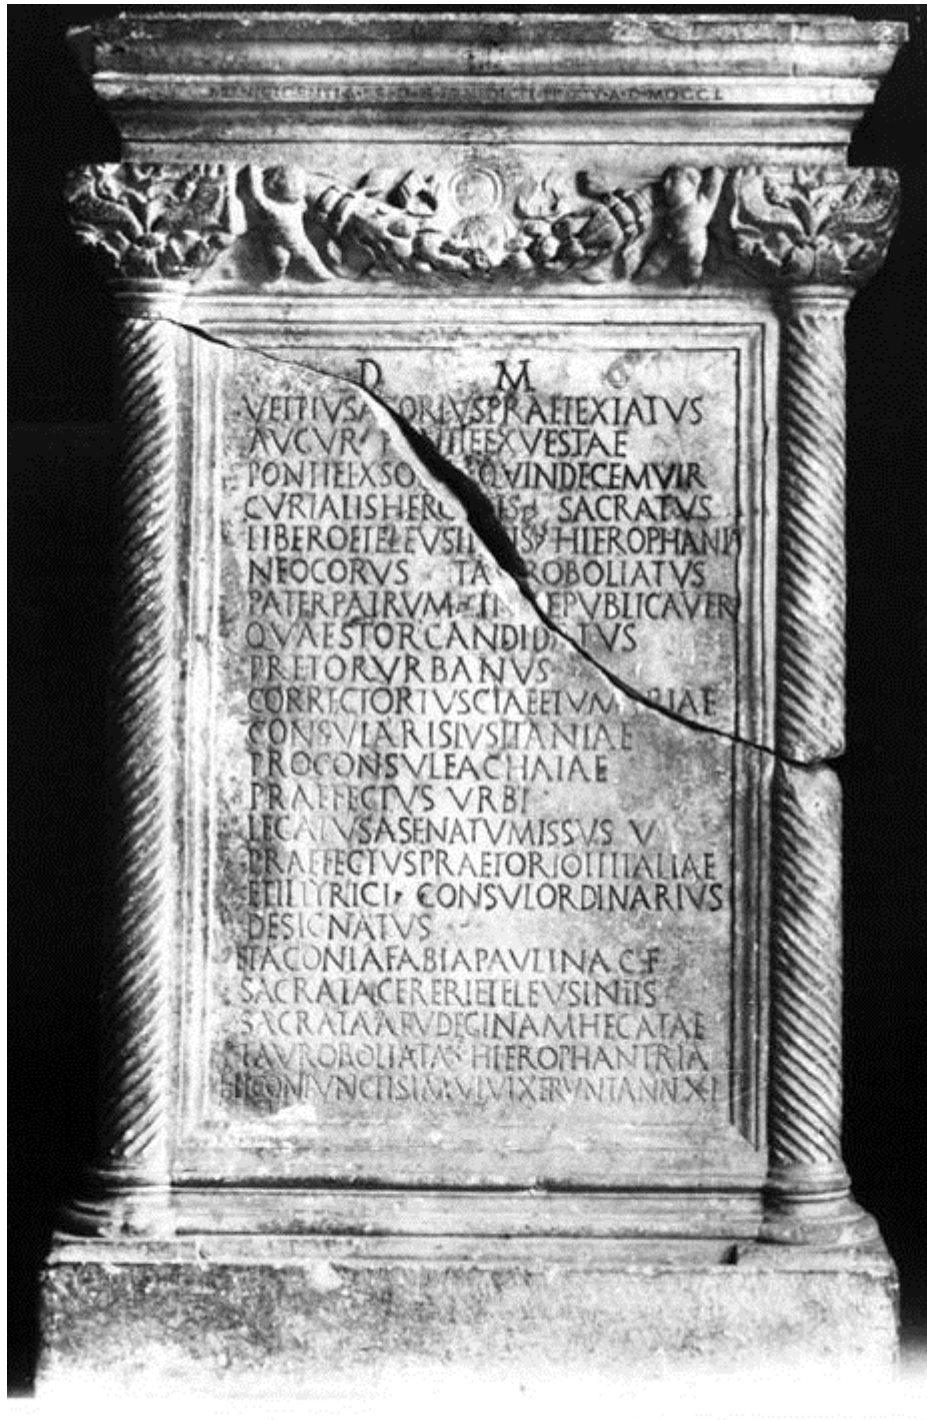 MUNIFICENTIA · SS · D · N · BENEDICTI · PP · XIV · A · D · MDCCL
D M
VETTIVS AGORIVS PRAETEXTATVS
AVGVR PONTIFEX VESTAE
PONTIFEX SO QVINDECEMVIR
CVRIALIS HERC IS SACRATVS
LIBERO ET ELEVSI IS HIEROPHANTA
NEOCORVS TAVROBOLIATVS
PATER PATRVM IN EPVBLICA VER
QVAESTOR CANDIDATVS
PRETOR VRBANVS
CORRECTOR TVSCIAE ET VM RIAE
CONSVLARIS LVSITANIAE
PROCONSVLE ACHAIAE
PRAEFECTVS VRBI
LEGATVS A SENATV MISSVS V
PRAEFECTVS PRAETORIO II ITALIAE
ET ILLYRICI CONSVL ORDINARIVS
DESIGNATVS
ET ACONIA FABIA PAVLINA C F
SACRATA CERERI ET ELEVSINIIS
SACRATA APVD EGINAM HECATAE
TAVROBOLIATA HIEROPHANTRIA
HI CONIVNCTI SIMVL VIXERVNT ANN XL